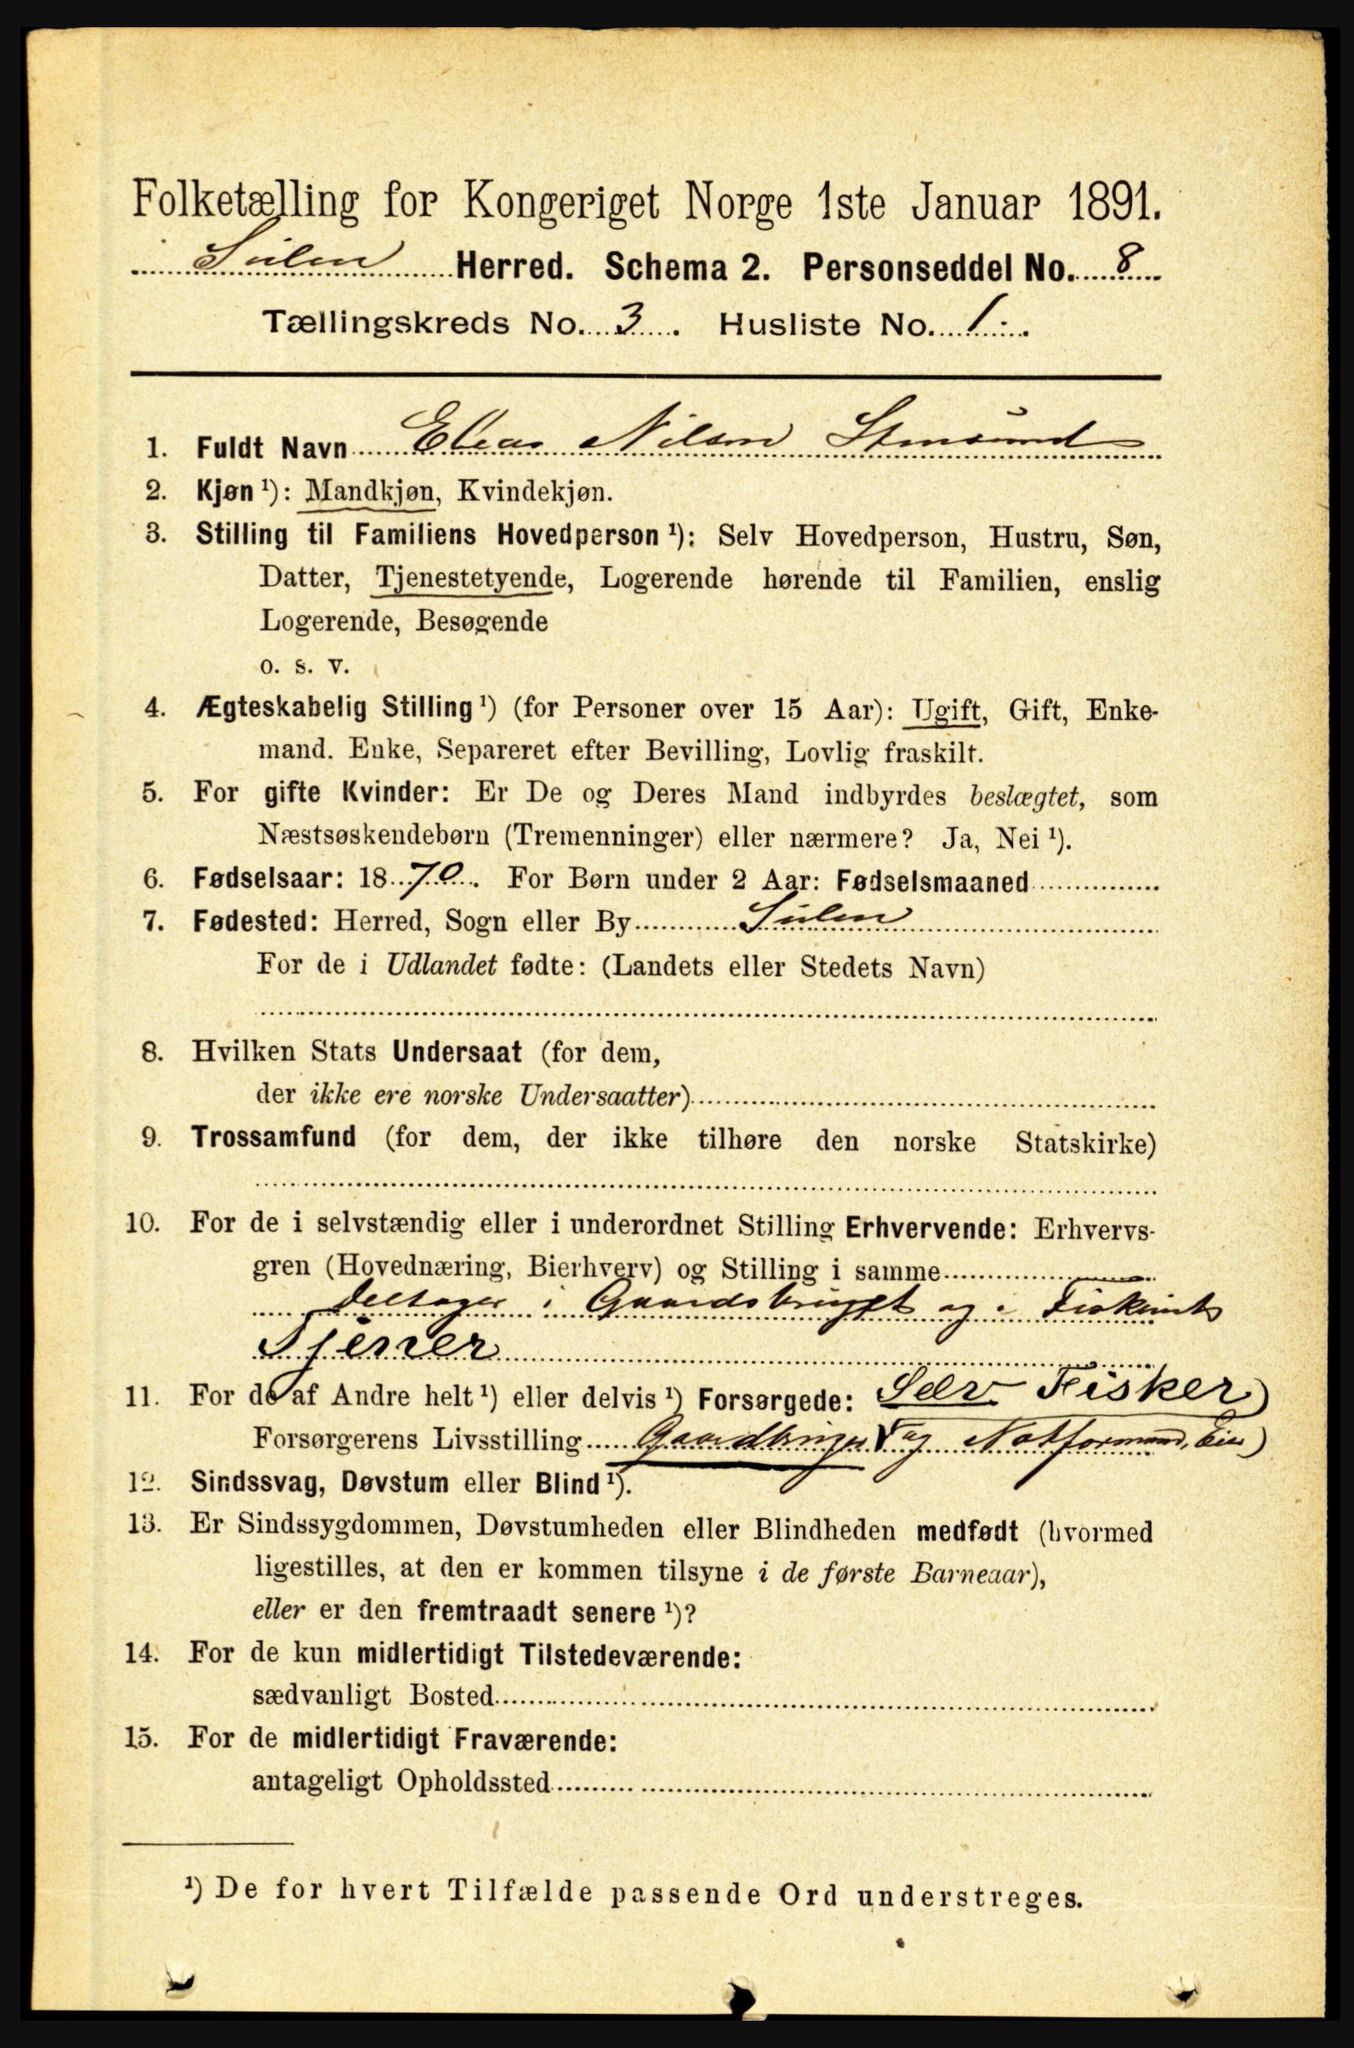 Folketælling for Kongeriget Norge 1ste Januar 1891.
i Sulen Herred. Schema 2. Personseddel No. 8
Tællingskreds No. 3. Husliste No. 1.
1. Fuldt Navn Elias Nilsen Stensund
2. Kjøn ¹): Mandkjøn, Kvindekjøn.
3. Stilling til Familiens Hovedperson ¹): Selv Hovedperson, Hustru, Søn,
Datter, Tjenestetyende, Logerende hørende til Familien, enslig
Logerende, Besøgende
o. s. v.
4. Ægteskabelig Stilling ¹) (for Personer over 15 Aar): Ugift, Gift, Enke-
mand. Enke, Separeret efter Bevilling, Lovlig fraskilt.
5. For gifte Kvinder: Er De og Deres Mand indbyrdes beslægtet, som
Næstsøskendebørn (Tremenninger) eller nærmere? Ja, Nei ¹).
6. Fødselsaar: 1870. For Børn under 2 Aar: Fødselsmaaned
7. Fødested: Herred, Sogn eller By Sulen
For de i Udlandet fødte: (Landets eller Stedets Navn)
8. Hvilken Stats Undersaat (for dem,
der ikke ere norske Undersaatter)
9. Trossamfund (for dem, der ikke tilhøre den norske Statskirke)
10. For de i selvstændig eller i underordnet Stilling Erhvervende: Erhvervs-
gren (Hovednæring, Bierhverv) og Stilling i samme
deltager i Gaardsbruget og i Fiskeriet
Tjener
11. For de af Andre helt ¹) eller delvis ¹) Forsørgede: Selv Fisker)
Forsørgerens Livsstilling Gaardbruger og Notformand, Eier)
12. Sindssvag, Døvstum eller Blind ¹).
13. Er Sindssygdommen, Døvstumheden eller Blindheden medfødt (hvormed
ligestilles, at den er kommen tilsyne i de første Barneaar),
eller er den fremtraadt senere ¹)?
14. For de kun midlertidigt Tilstedeværende:
sædvanligt Bosted
15. For de midlertidigt Fraværende:
antageligt Opholdssted
¹) De for hvert Tilfælde passende Ord understreges.